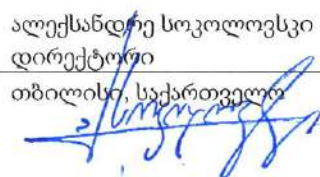 ალექსანდრე სოკოლოვსკი
დირექტორი
თბილისი, საქართველო